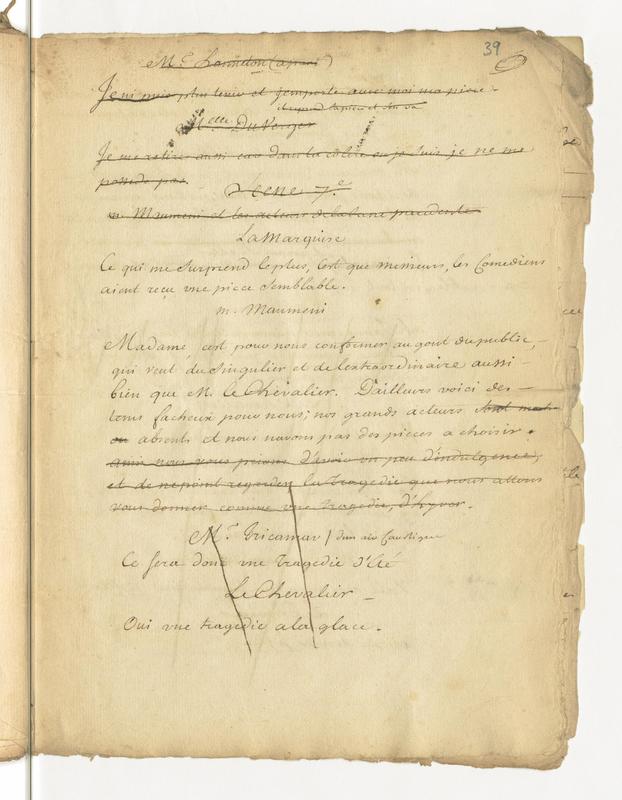 39
Je ni puis plus tenir et j'emporte avec moi ma piece.
il reprend sa piece et s'en va
M.elle Du Verger
Je me retire aussi car dans la colere ou je suis je ne me
possede pas.
Scene 7.e
m. Maumeni et les acteurs de la scene precedente
La Marquise
Ce qui me surprend le plus, c'est que messieurs, les Comediens
aient reçu une piece semblable.
m. Maumeni
Madame, c'est pour nous conformer au gout du public,
qui veut du singulier et de l'extraordinaire aussi
bien que M. le Chevalier. D'ailleurs voici des
tems facheux pour nous; nos grands acteurs sont mala-
ou absents et nous n'avons pas des pieces a choisir.
ainsi nous vous prions d'avoir un peu d'indulgence,
et de ne point regarder la tragedie que nous allons
vous donner comme une tragedie, d'hyver.
M.r Tricamar / d'un air Caustique
Ce sera donc une tragedie d'Eté
Le Chevalier
Oui une tragedie a la glace.